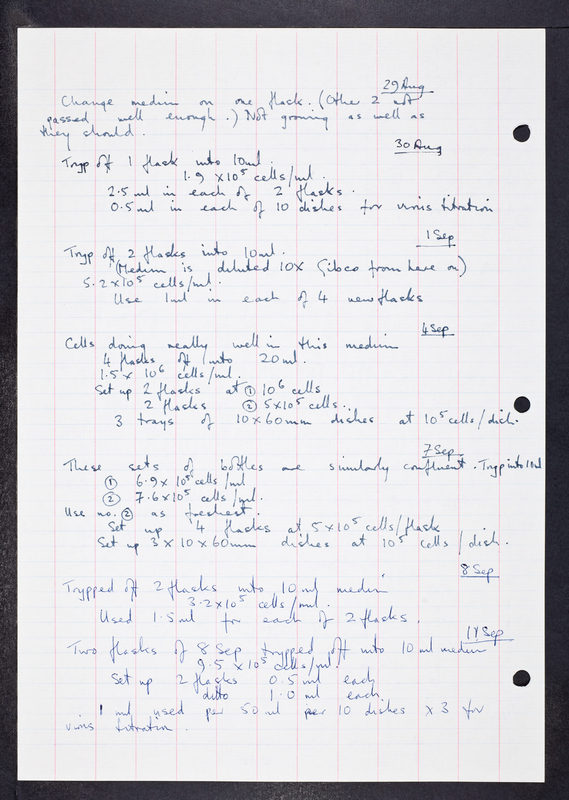 29 Aug
Change medium on one flask. (Other 2 not
passed well enough.) Not growing as well as
they should.
30 Aug
Tryp off 1 flask into 10ml.
1.9 x 10⁵ cells/ml.
2.5 ml in each of 2 flasks.
0.5 ml in each of 10 dishes for virus titration
1 Sep
Tryp off 2 flasks into 10ml.
(Medium is diluted 10X Gibco from here on)
5.2 x 10⁵ cells/ml.
Use 1ml in each of 4 new flasks
4 Sep
Cells doing really well in this medium
4 flasks off into 20ml.
1.5 x 10⁶ cells/ml.
Set up 2 flasks at ① 10⁶ cells
2 flasks ② 5x10⁵ cells.
3 trays of 10x60mm dishes at 10⁵ cells/dish.
7 Sep.
These sets of bottles are similarly confluent. Tryp into 10ml
① 6.9 x 10⁵ cells/ml
② 7.6 x 10⁵ cells/ml.
Use no. ② as freshest.
Set up 4 flasks at 5x10⁵ cells/flask
Set up 3 x 10 x 60mm dishes at 10⁵ cells/dish.
8 Sep
Trypped off 2 flasks into 10 ml medium
3.2 x 10⁵ cells/ml.
Used 1.5 ml for each of 2 flasks.
11 Sep
Two flasks of 8 Sep trypped off into 10 ml medium
9.5 x 10⁵ cells/ml.
Set up 2 flasks 0.5 ml each
ditto 1.0 ml each.
1 ml used per 50 ml per 10 dishes x 3 for
virus titration.